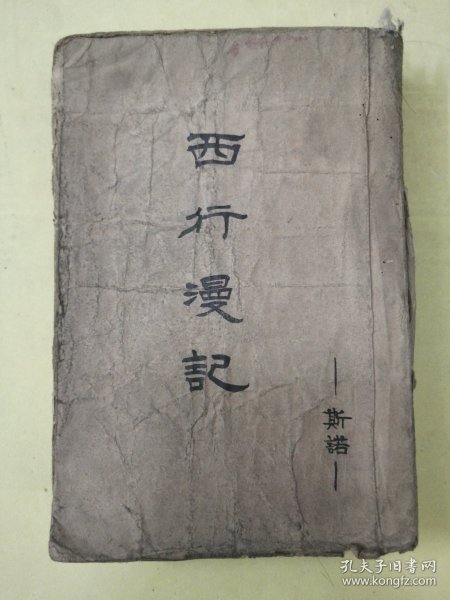 西行漫記
—斯諾—
孔夫子旧书网
www.kongfz.com